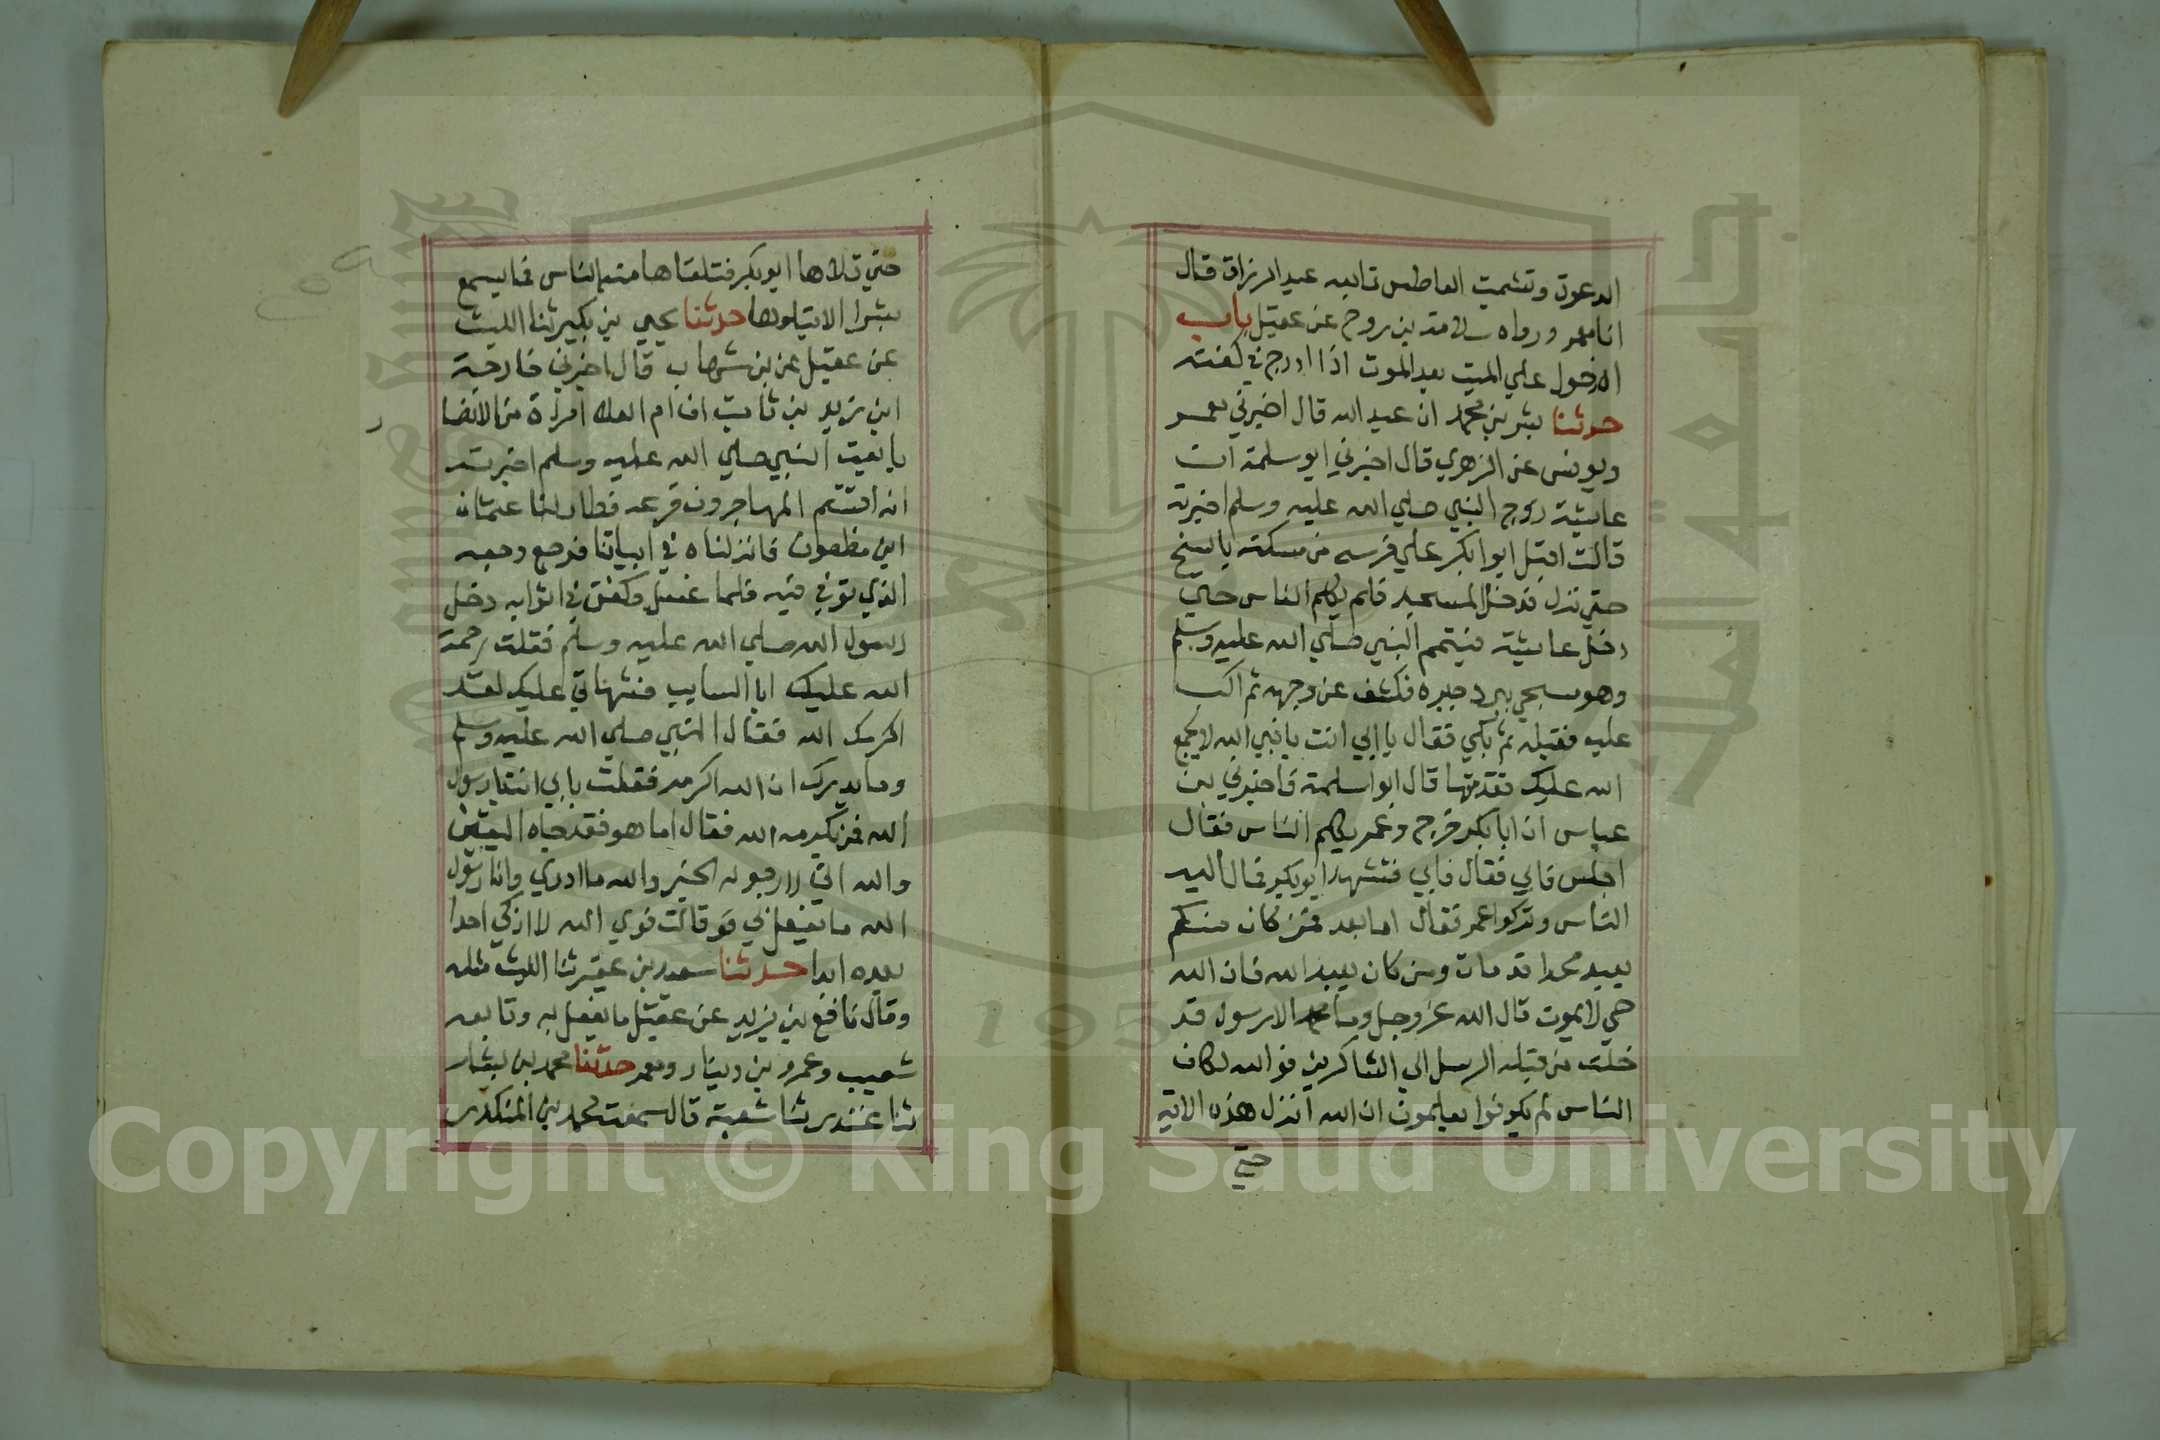 الدعوة وتشميت العاطس تابعه عبد الرزاق قال
انا معمر ورواه سلامة بن روح عن عقيل باب
الدخول علي الميت بعد الموت اذا ادرج في كفنه
حدثنا بشر بن محمد ان عبد الله قال اخبرني معمر
ويونس عن الزهري قال اخبرني ابو سلمة ان
عايشة زوج النبي صلي الله عليه وسلم اخبرته
قالت اقبل ابوا بكر علي فرسه من مسكنه بالسنح
حتي نزل فدخل المسجد فلم يكلم الناس حتي
دخل عايشة فيتمم النبي صلي الله عليه وسلم
وهو مسجي ببرد حبره فكشف عن وجهه ثم اكب
عليه فقبله ثم بكي فقال يا ابي انت يا نبي الله لا يجمع
الله عليك فقدمتها قال ابوا سلمة فاخبرني بن
عباس ان ابا بكر خرج وعمر يكلم الناس فقال
اجلس فابي فقال فابي فتشهد ابو بكر فمال اليه
الناس وتركوا عمر فقال اما بعد فمن كان منكم
يعبد محمدا قد مات ومن كان يعبد الله فان الله
حي لا يموت قال الله عز وجل وما محمد الا رسول قد
خلت من قبله الرسل الي الشاكرين فوالله لكان
الناس لم يكونوا يعلمون ان الله انزل هذه الاية
حتي
حتي تلاها ابو بكر فتلقاها منه الناس فما يسمع
بشرا الا يتلوها حدثنا يحيي بن بكير ثنا الليث
عن عقيل عن بن شهاب قال اخبرني خارجة
ابن زيد بن ثابت ان ام العلا امراة من الانصا
ر
بايعت النبي صلي الله عليه وسلم اخبرته
انه اقتسم المهاجرون قرعه فطار لنا عثمان
ابن مظعون فانزلناه في ابياتنا فوجع وجعه
الذي توفي فيه فلما غسل وكفن في اثوابه دخل
رسول الله صلي الله عليه وسلم فقلت رحمة
الله عليك ابا السايب فشهادتي عليك لقد
اكرمك الله فقال النبي صلي الله عليه وسلم
وما يدريك ان الله اكرمه فقلت بابي انت يا رسول
الله فمن يكرمه الله فقال اما هو فقد جاه اليقين
والله اني لارجو له الخير والله ما ادري وانا رسول
الله ما يفعل بي قو قالت فوي الله لا ازكي احدا
بعده ابدا حدثنا سعيد بن عفير ثنا الليث مثله
وقال نافع بن يزيد عن عقيل ما يفعل به وتابعه
شعيب وعمرو بن دينار ومعمر حدثنا محمد بن بشار
ثنا غندر ثنا شعبة قال سمعت محمد بن المنكدر
Copyright © King Saud University
1957